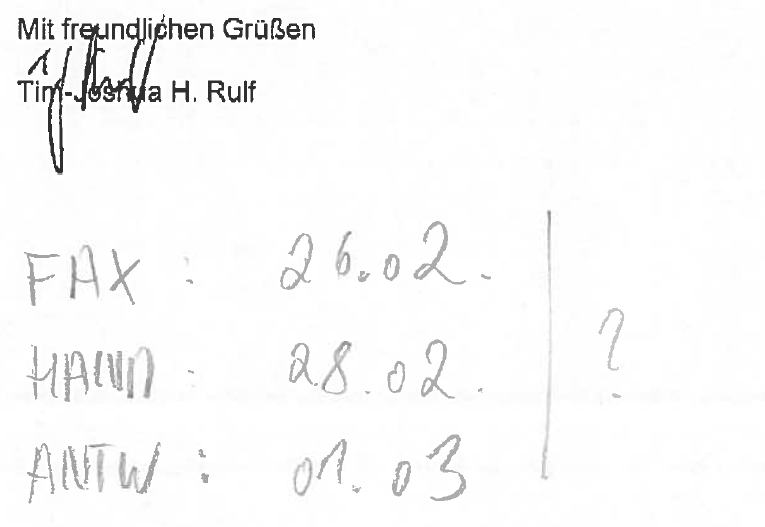 Mit freundlichen Grüßen
Tim-Joshua H. Rulf
FAX : 26.02.
HAND : 28.02. ?
ANTW : 01.03